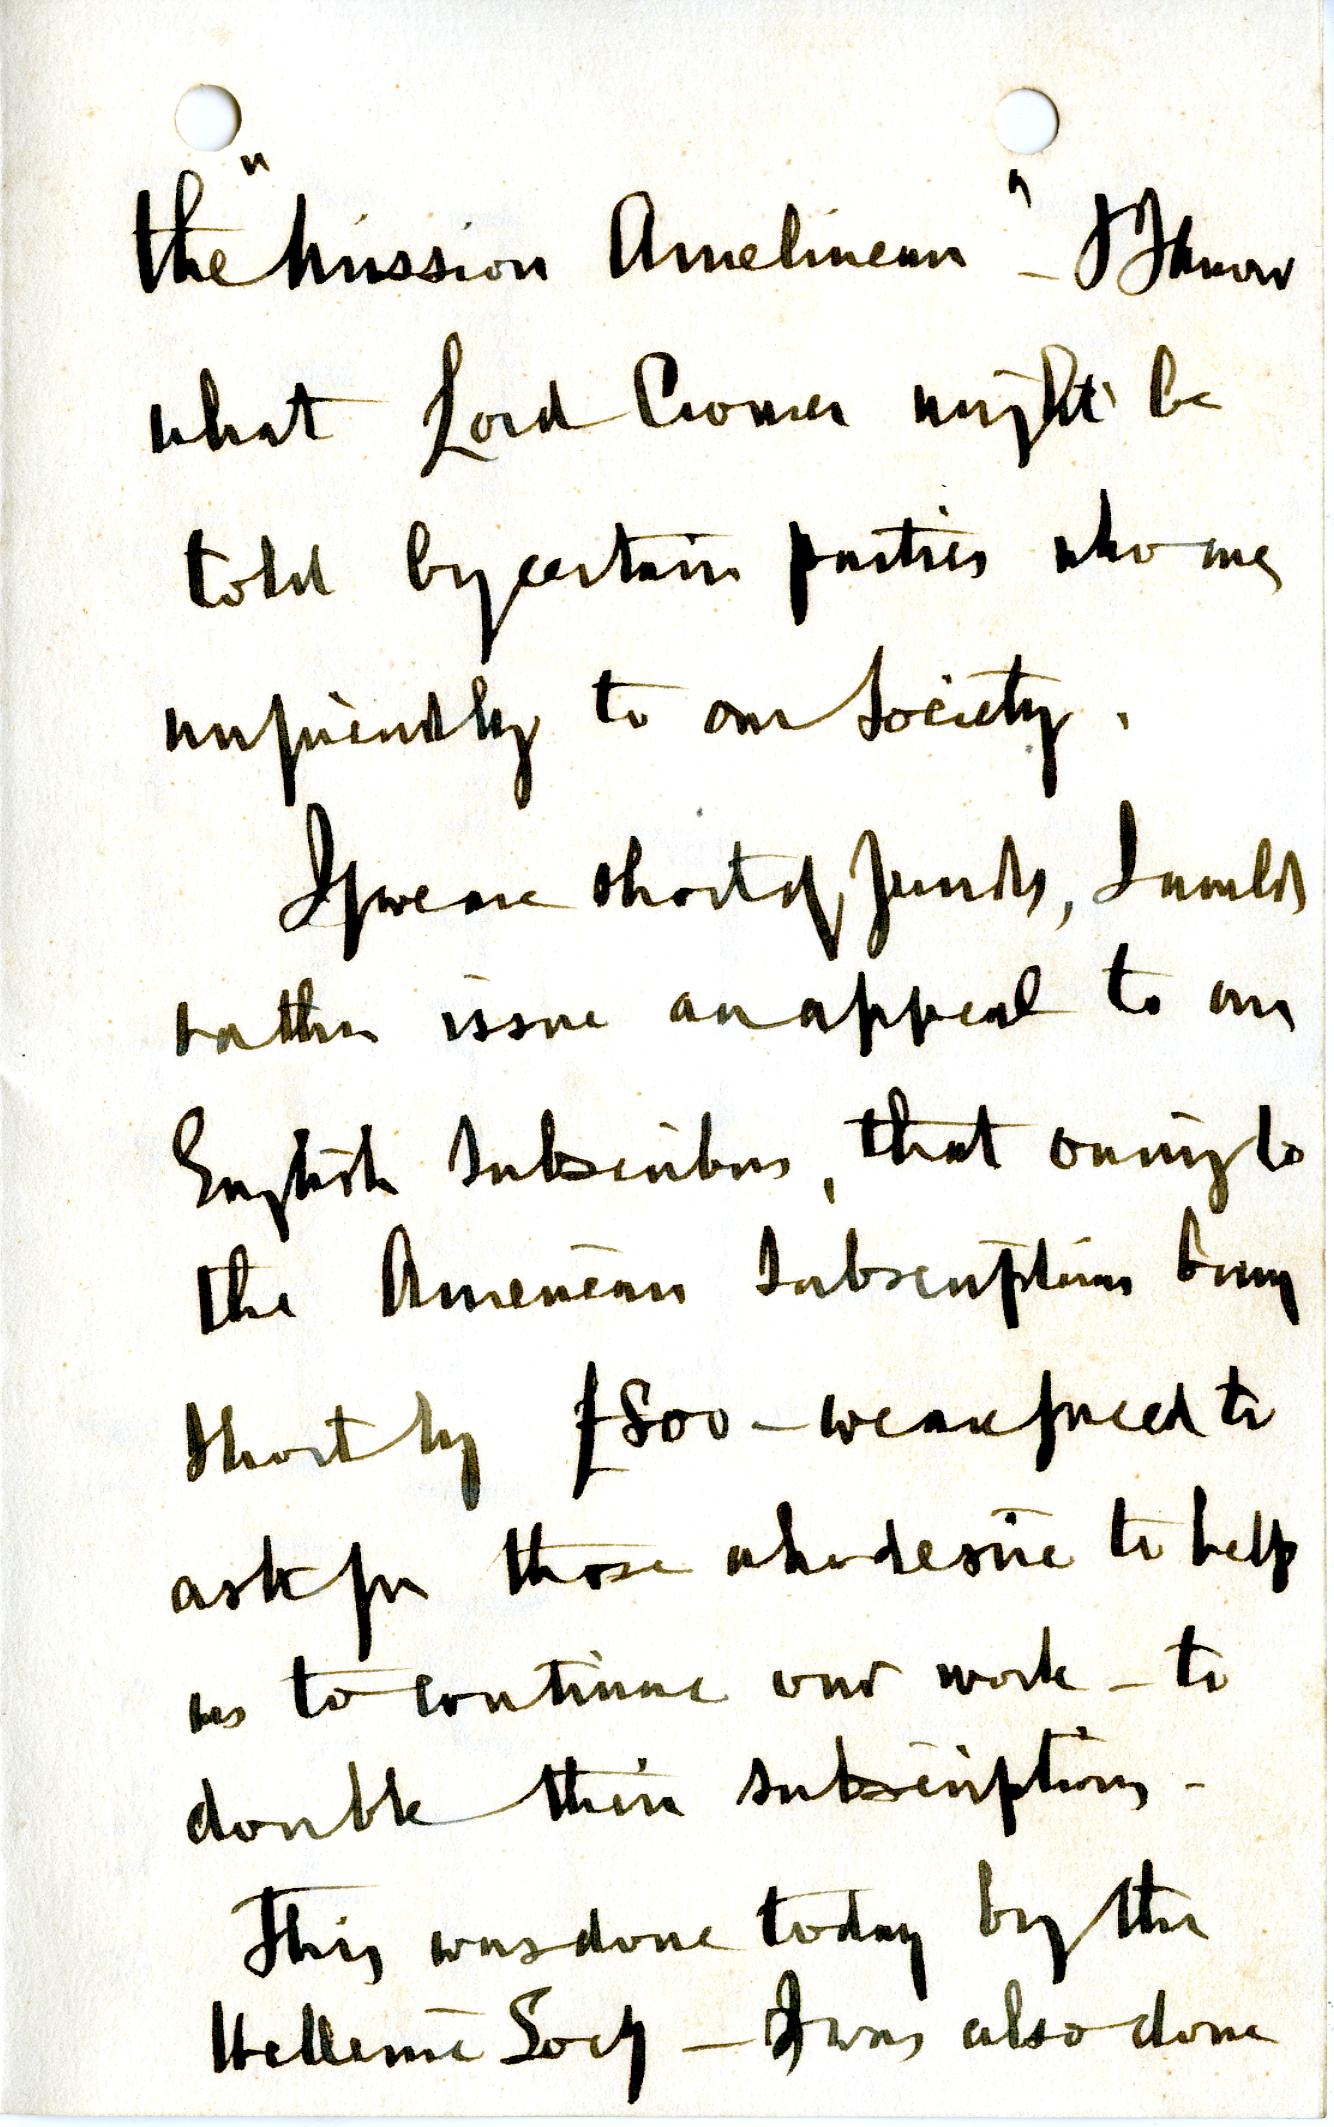 the "Mission Amelineau" - I know
what Lord Cromer might be
told by certain parties who are
unfriendly to our Society.
If we are short of funds, I would
rather issue an appeal to our
English subscribers, that owing to
the American subscriptions being
short by £800 - we are forced to
ask for those who desire to help
us to continue our work - to
double their subscriptions -
This was done today by the
Hellenic Socy - I was also done